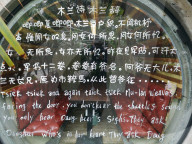 木兰诗木兰辞
唧唧复唧唧,木兰当户织。不闻机杼
声,惟闻女叹息。问女何所思,问女何所忆。
女亦无所思,女亦无所忆。昨夜见军帖,可汗大
点兵,军书十二卷,卷卷有爷名。阿爷无大儿,木
兰无长兄,愿为市鞍马,从此替爷征.
Tsiek tsiek and again tsiek tsiek Mu-lan weaves
facing the door. you don't hear the shuttle's sound
You only hear Daughter's Sighs. They ask
Daughter who's in her heart They ask Daug